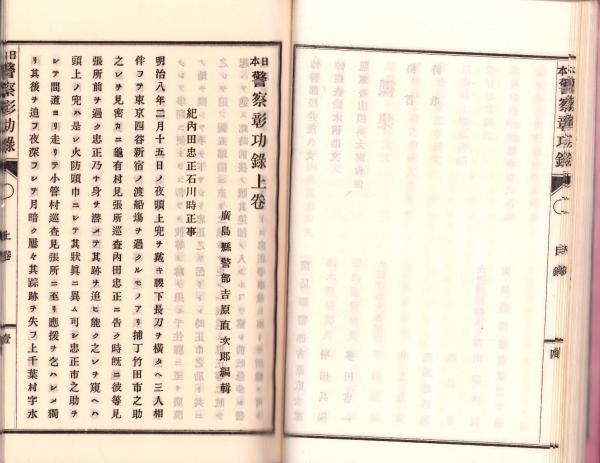 日本警察彰功錄上卷
廣島縣警部吉原直次郎編輯
紀內田忠正石川時正事
明治八年二月十五日ノ夜頭上兜ヲ戴キ腰下長刀ヲ橫タヘ三人相
伴フテ東京四谷新宿ノ渡船場ヲ過クルモノアリ捕丁竹田市之助
之レヲ見密カニ龜有村見張所巡查內田忠正ニ告ク時既ニ彼等見
張所前ヲ過ク忠正乃チ身ヲ潛メテ其跡ヲ追ヒ能ク之レヲ窺ヘハ
頭上ノ兜ハ是レ火防頭巾ニシテ其狀眞ニ異ム可シ忠正市之助ヲ
シテ間道ヨリ走リテ小菅村巡查見張所ニ至リ應援ヲ乞ハシメ獨
リ其後ヲ追フ夜深フシテ月暗ク屢々其踪跡ヲ失フ上千葉村字水
日本警察彰功錄
上卷
壹
日本警察彰功錄
目錄